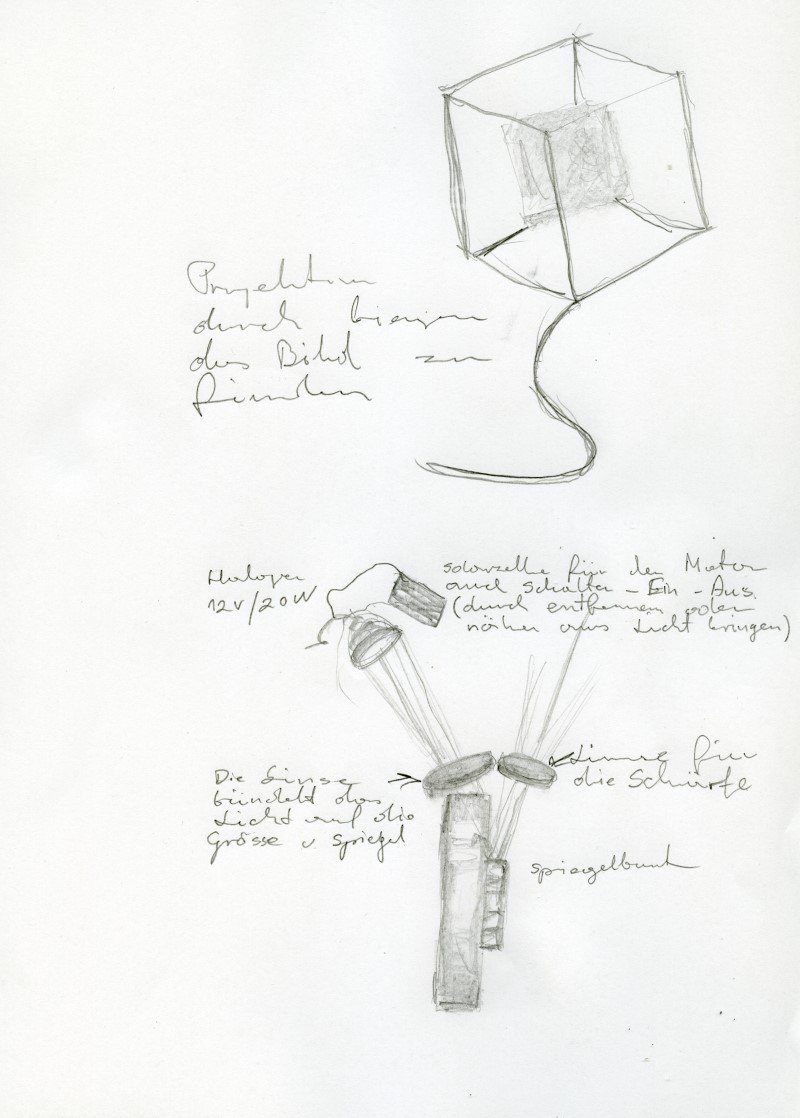 Projektion
durch biegen
das Bild zu
finden
Halogen
12V/20W
solarzelle für den Motor
und Schalter - Ein - Aus.
(durch entfernen oder
näher ans Licht bringen)
Die Linse
bündelt das
Licht auf die
Grösse v spiegel
Linse für
die Schärfe